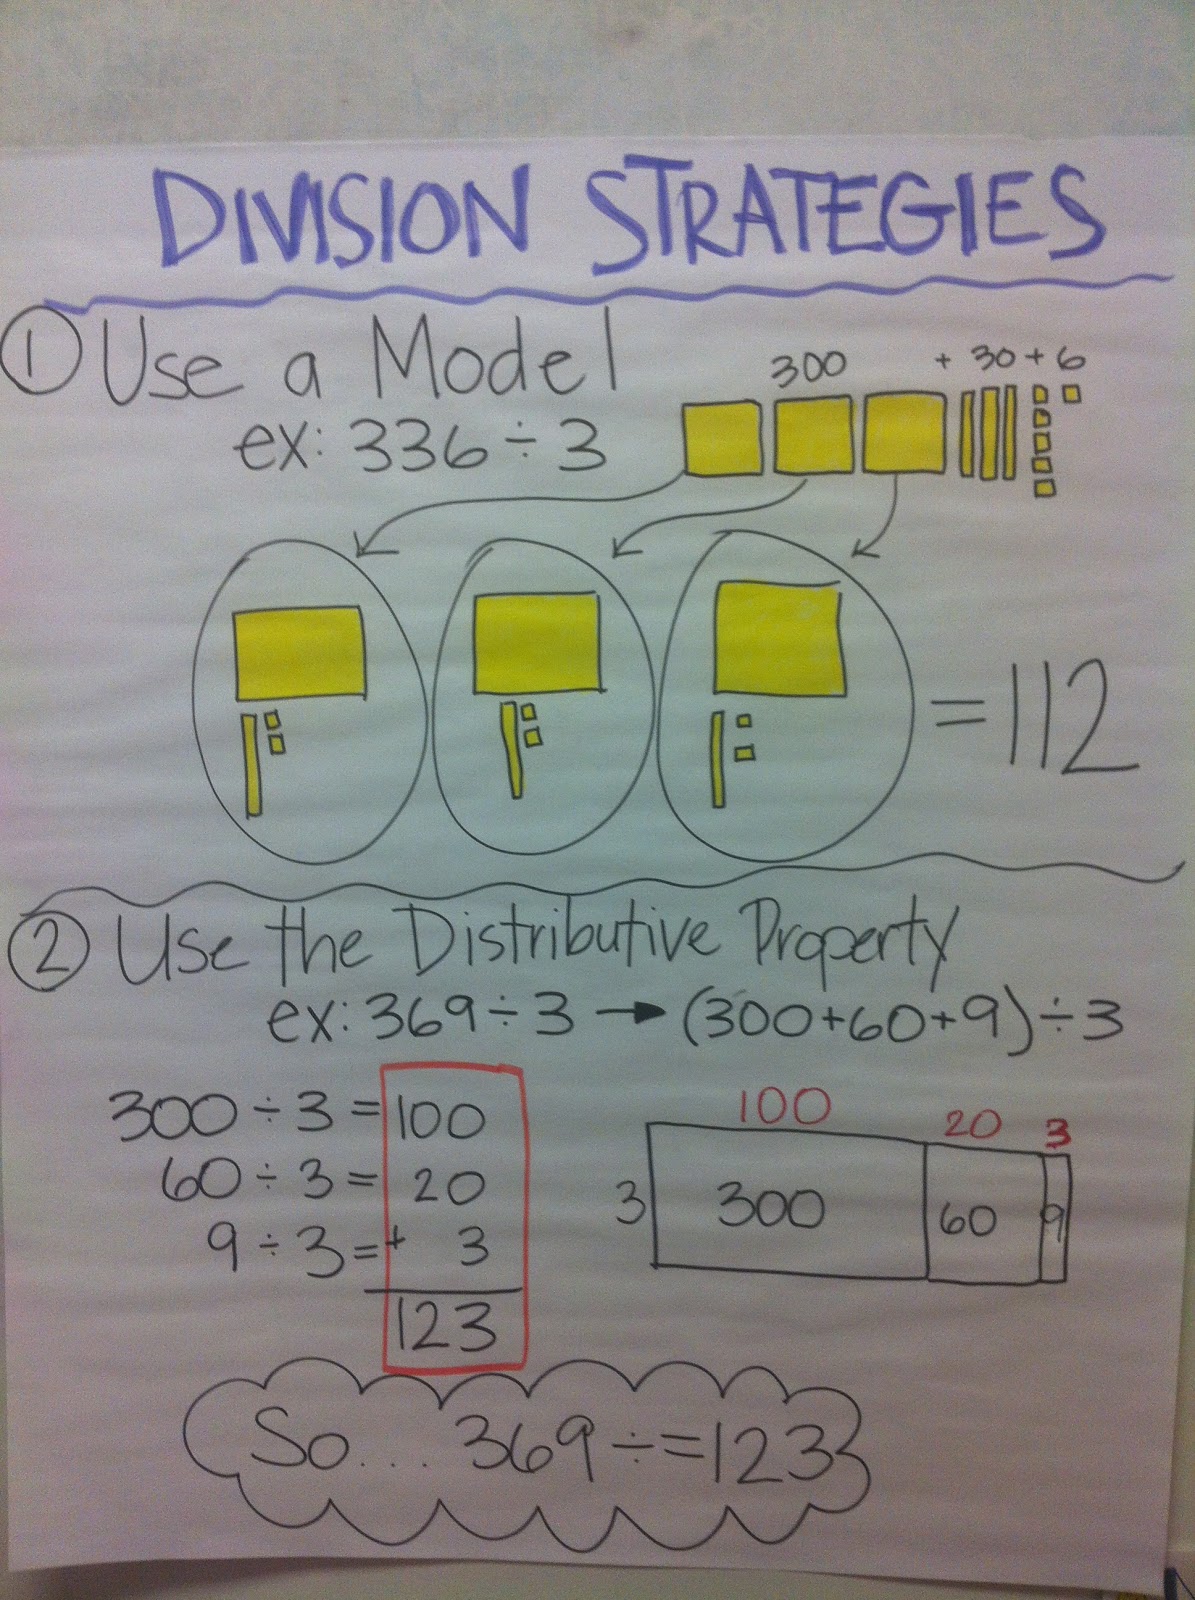 DIVISION STRATEGIES
① Use a Model
300 + 30 + 6
ex: 336 ÷ 3
= 112
② Use the Distributive Property
ex: 369 ÷ 3 → (300+60+9) ÷ 3
300 ÷ 3 = 100
60 ÷ 3 = 20
9 ÷ 3 = + 3
123
100 20 3
3 300 60 9
So... 369 ÷ = 123